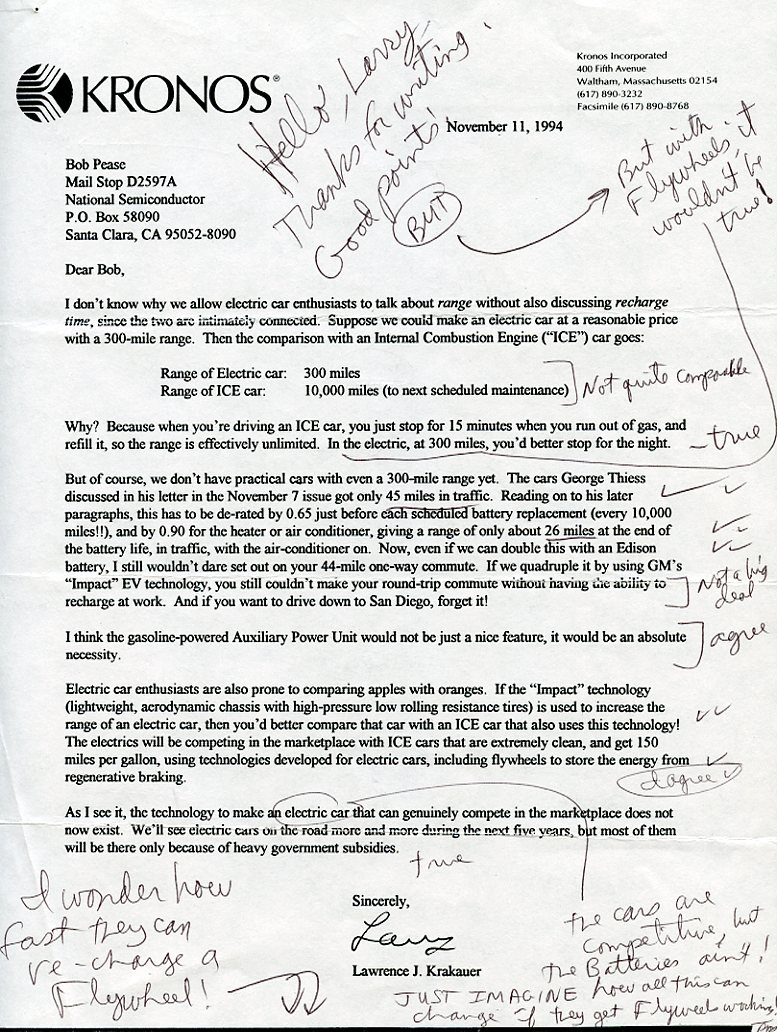 KRONOS®
Kronos Incorporated
400 Fifth Avenue
Waltham, Massachusetts 02154
(617) 890-3232
Facsimile (617) 890-8768
Hello, Larry,
Thanks for writing.
Good points!
BUT
But with
Flywheels, it
wouldn't be
true!
November 11, 1994
Bob Pease
Mail Stop D2597A
National Semiconductor
P.O. Box 58090
Santa Clara, CA 95052-8090
Dear Bob,
I don't know why we allow electric car enthusiasts to talk about range without also discussing recharge
time, since the two are intimately connected. Suppose we could make an electric car at a reasonable price
with a 300-mile range. Then the comparison with an Internal Combustion Engine ("ICE") car goes:
Range of Electric car: 300 miles
Range of ICE car: 10,000 miles (to next scheduled maintenance)
Not quite comparable
Why? Because when you're driving an ICE car, you just stop for 15 minutes when you run out of gas, and
refill it, so the range is effectively unlimited. In the electric, at 300 miles, you'd better stop for the night.
- true
But of course, we don't have practical cars with even a 300-mile range yet. The cars George Thiess
discussed in his letter in the November 7 issue got only 45 miles in traffic. Reading on to his later
paragraphs, this has to be de-rated by 0.65 just before each scheduled battery replacement (every 10,000
miles!!), and by 0.90 for the heater or air conditioner, giving a range of only about 26 miles at the end of
the battery life, in traffic, with the air-conditioner on. Now, even if we can double this with an Edison
battery, I still wouldn't dare set out on your 44-mile one-way commute. If we quadruple it by using GM's
"Impact" EV technology, you still couldn't make your round-trip commute without having the ability to
recharge at work. And if you want to drive down to San Diego, forget it!
Not a big
deal
I think the gasoline-powered Auxiliary Power Unit would not be just a nice feature, it would be an absolute
necessity.
agree
Electric car enthusiasts are also prone to comparing apples with oranges. If the "Impact" technology
(lightweight, aerodynamic chassis with high-pressure low rolling resistance tires) is used to increase the
range of an electric car, then you'd better compare that car with an ICE car that also uses this technology!
The electrics will be competing in the marketplace with ICE cars that are extremely clean, and get 150
miles per gallon, using technologies developed for electric cars, including flywheels to store the energy from
regenerative braking.
As I see it, the technology to make an electric car that can genuinely compete in the marketplace does not
now exist. We'll see electric cars on the road more and more during the next five years, but most of them
will be there only because of heavy government subsidies.
true
Sincerely,
Larry
Lawrence J. Krakauer
I wonder how
fast they can
re-charge a
Flywheel!
the cars are
competitive, but
the Batteries ain't!
JUST IMAGINE how all this can
change if they get Flywheels working!